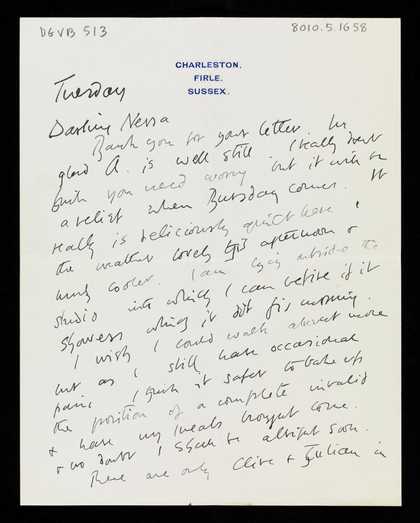 DGVB 513
8010.5.1658
CHARLESTON,
FIRLE,
SUSSEX.
Tuesday
Darling Nessa
Thank you for your letter. Im
glad A. is well still I really dont
think you need worry but it will be
a relief when Thursday comes. It
really is deliciously quiet here,
the weather lovely this afternoon &
much cooler. I am lying outside the
studio into which I can retire if it
showers which it did this morning.
I wish I could walk about more
but as I still have occasional
pain I think it safer to take up
the position of a complete invalid
& have my meals brought
& no doubt I shall be alright soon.
There are only Clive & Julian in